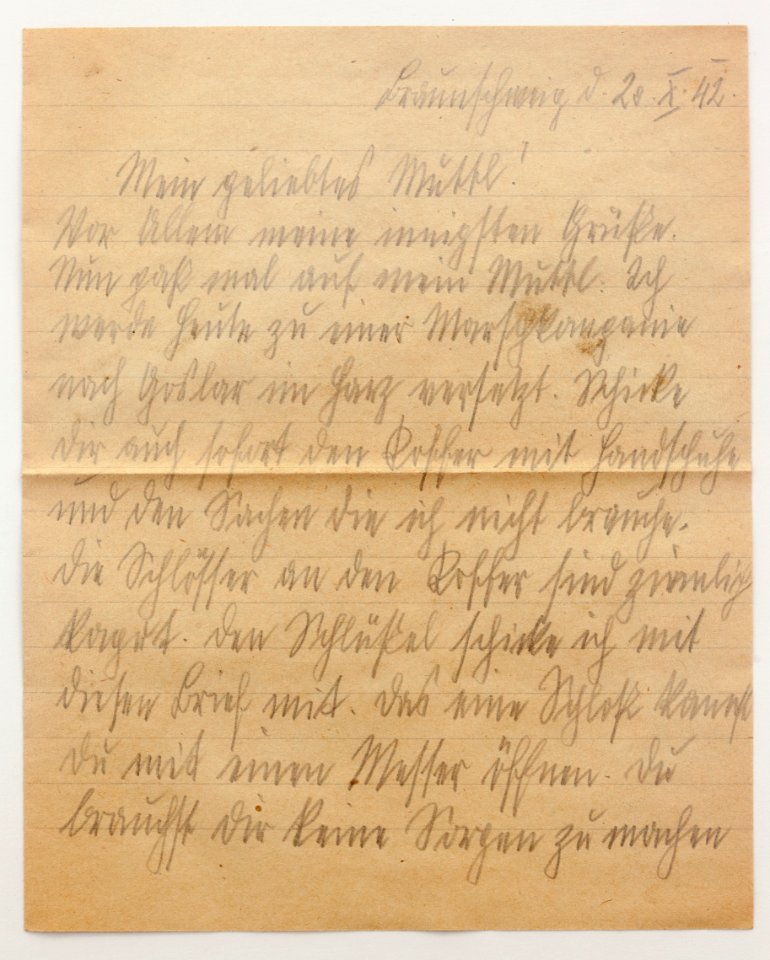 Braunschweig d. 20.X.42.
Mein geliebtes Muttl!
Vor Allem meine innigsten Grüße.
Nun paß mal auf mein Muttl. Ich
werde heute zu einer Marschkompanie
nach Goslar im Harz versetzt. Schicke
dir auch sofort den Koffer mit Handschuhe
und den Sachen die ich nicht brauche.
Die Schlösser an den Koffer sind ziemlich
kaputt. Den Schlüßel schicke ich mit
diesen Brief mit. Das eine Schloß kannst
du mit einen Messer öffnen. Du
brauchst dir keine Sorgen zu machen